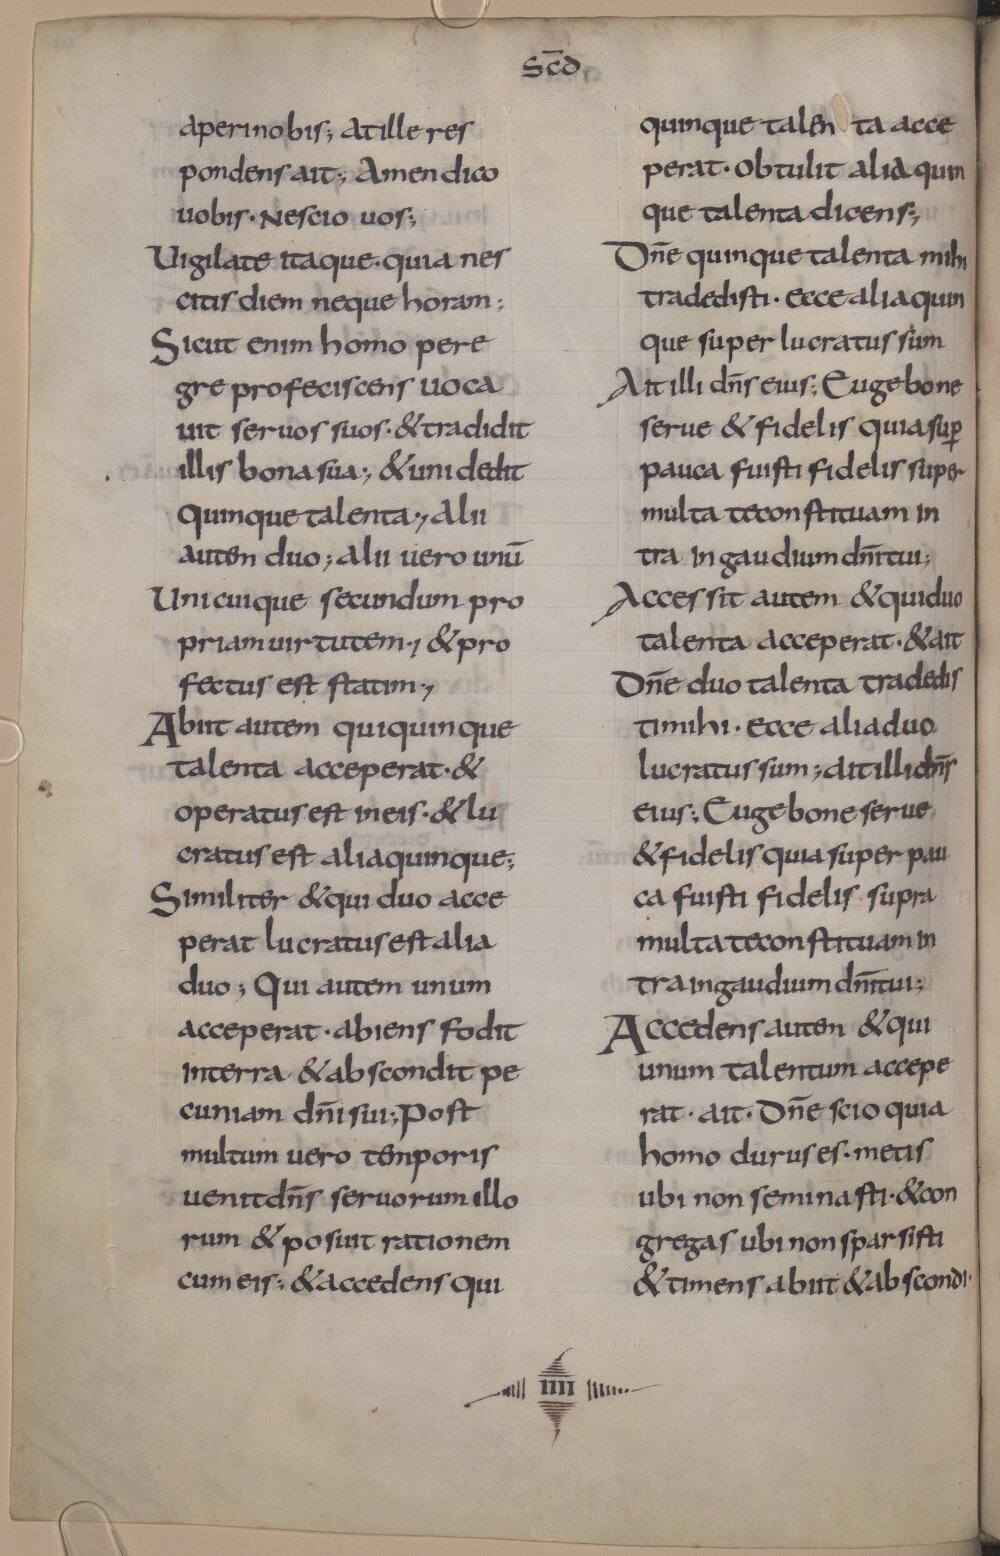 Scd̄
aperi nobis; at ille res
pondens ait; Amen dico
uobis · Nescio uos;
Uigilate itaque · quia nes
citis diem neque horam;
Sicut enim homo pere
gre profeciscens uoca
uit seruos suos · & tradidit
illis bona sua; & uni dedit
quinque talenta; Alii
autem duo; alii uero unū
Unicuique secundum pro
priam uirtutem; & pro
fectus est statim;
Abiit autem qui quinque
talenta acceperat · &
operatus est in eis · & lu
cratus est alia quinque;
Similiter & qui duo acce
perat lucratus est alia
duo; Qui autem unum
acceperat · abiens fodit
in terra & abscondit pe
cuniam dn̄i sui; Post
multum uero temporis
uenit dn̄s seruorum illo
rum & posuit rationem
cum eis; & accedens qui
quinque talenta acce
perat · obtulit alia quin
que talenta dicens;
Dn̄e quinque talenta mihi
tradedisti · ecce alia quin
que super lucratus sum
Ait illi dn̄s eius; Euge bone
serue & fidelis quia sup̄
pauca fuisti fidelis super
multa te constituam in
tra in gaudium dn̄i tui;
Accessit autem & qui duo
talenta acceperat · & ait
Dn̄e duo talenta tradedis
ti mihi · ecce alia duo
lucratus sum; ait illi dn̄s
eius; Euge bone serue
& fidelis quia super pau
ca fuisti fidelis supra
multa te constituam in
tra in gaudium dn̄i tui;
Accedens autem & qui
unum talentum accepe
rat · ait · Dn̄e scio quia
homo durus es · metis
ubi non seminasti · & con
gregas ubi non sparsisti
& timens abiit & abscondi
IIII